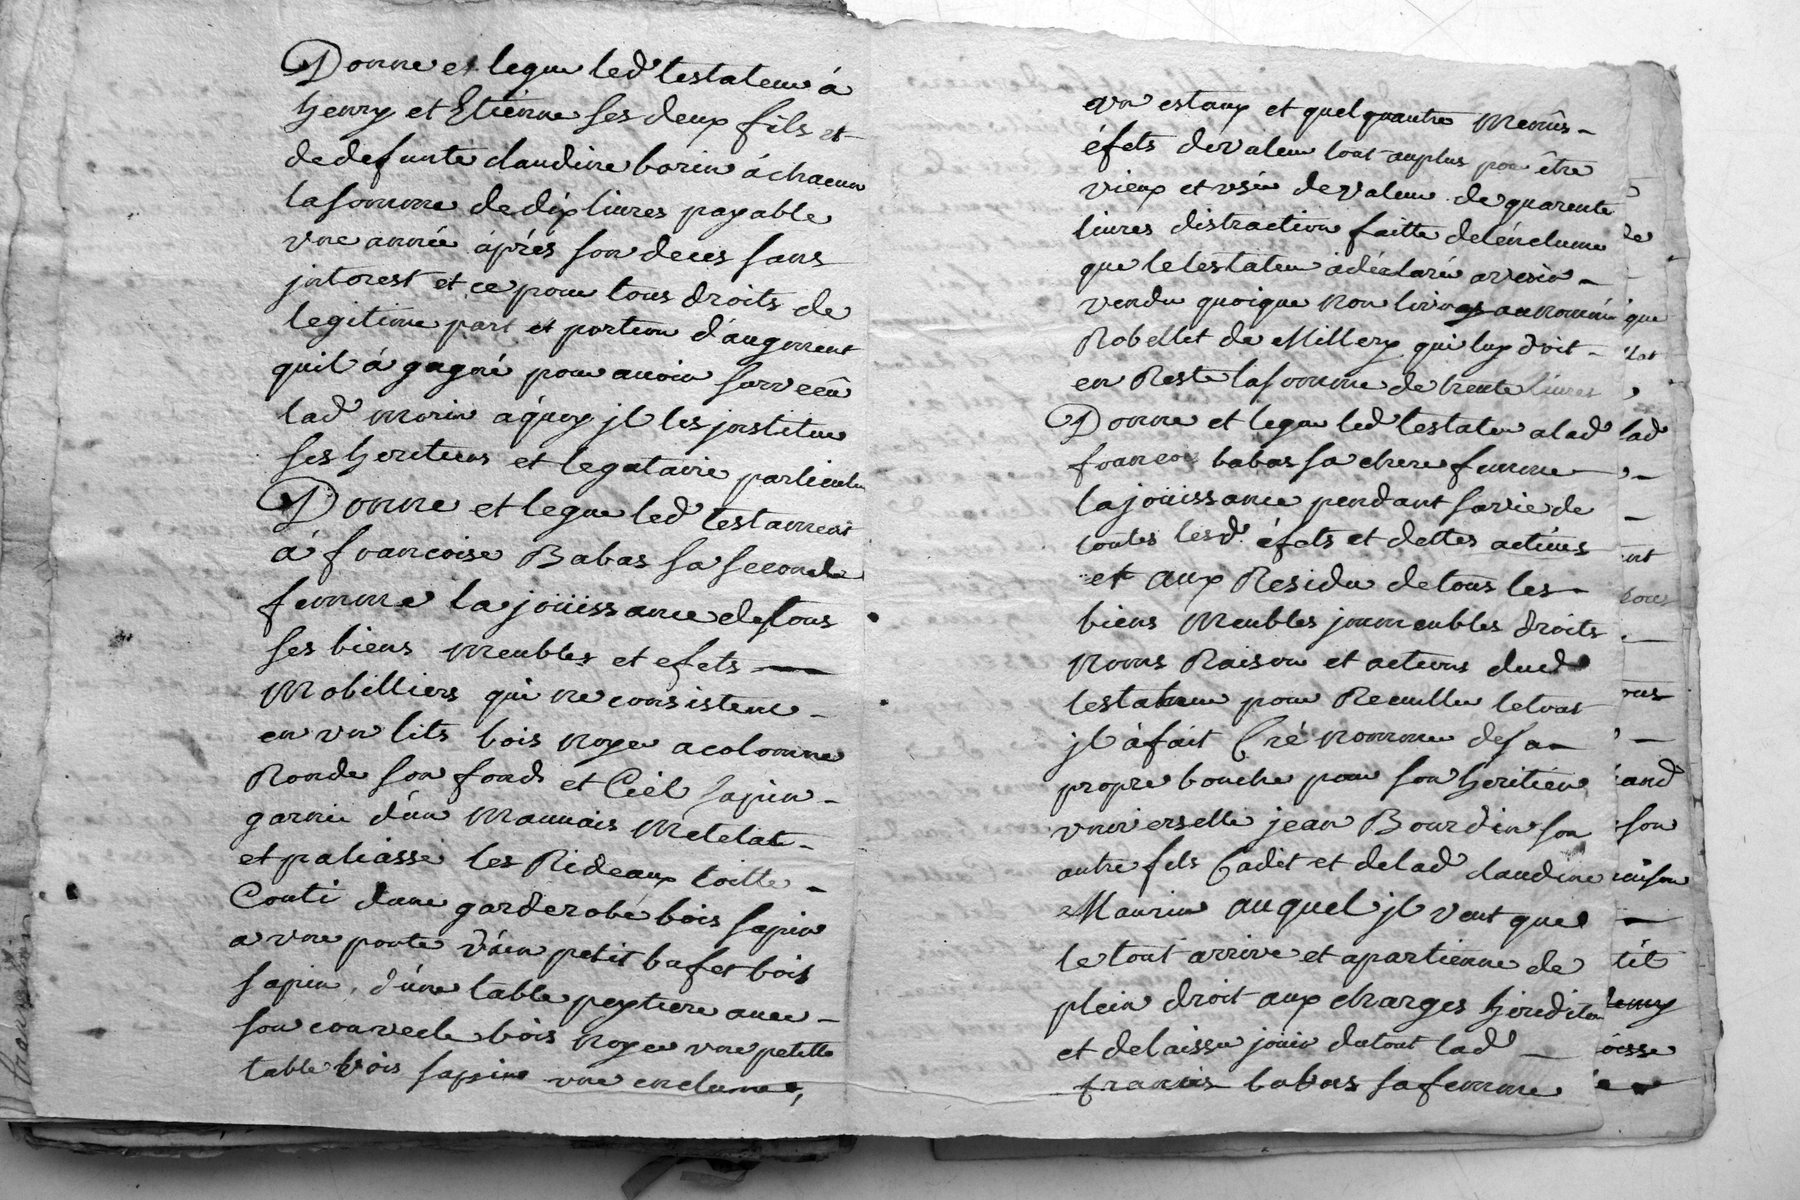 Donne et legue led testateur á
henry et Etienne ses deux fils et
de defunte claudine borin á chacun
la somme de dix livres payable
vne année áprés son deces sans
jntorest et ce pour tous droits de
legitime part et portion d'augment
quil á gagné pour auoir surveéu
lad morin a quoy jl les jnstitue
ses heritiers et legataire particulier
Donne et legue led testament
á francoise Babas sa seconde
femme la joüissance de tous
ses biens meubles et efets
Mobilliers qui ne consistent
en vn lits bois noyer a colonne
Ronde son fond et Ciel sapin
garnie d'un Mauuais Metelat
et paliasse les Rideaux toille
Couti d'une garderobe bois sapin
a vne porte d'un petit bufet bois
sapin, d'une table peytiere auec
son couvecle bois noyer vne petitte
table bois sapin vne enclume,
vn estaux et quelquautre Menûs
éfets de valeur tout auplus pour être
vieux et vsés de valeur de quarente
livres distraction faitte de lénclume
que le testateur á déclaré avoir
vendu quoique non livrer au nommé
Robellet de Millery qui luy doit
en Reste la somme de trente livres
Donne et legue led testateur a lad
francois babas sa chere femme
la joüissance pendant sa vie de
toutes lesd. éfets et dettes actives
et aux Residu de tous les
biens Meubles jmmeubles droits
Noms Raison et actions dud
testateur pour Recuillir le tout
jl á fait Cré nomme de sa
propre bouche pour son heritier
vniverselle jean Bourdin son
autre fils Cadet et de lad claudine
Maurin auquel jl veut que
le tout arrive et apartienne de
plein droit aux charges heredite
et delaisser jouir du tout lad
francois babas sa femme